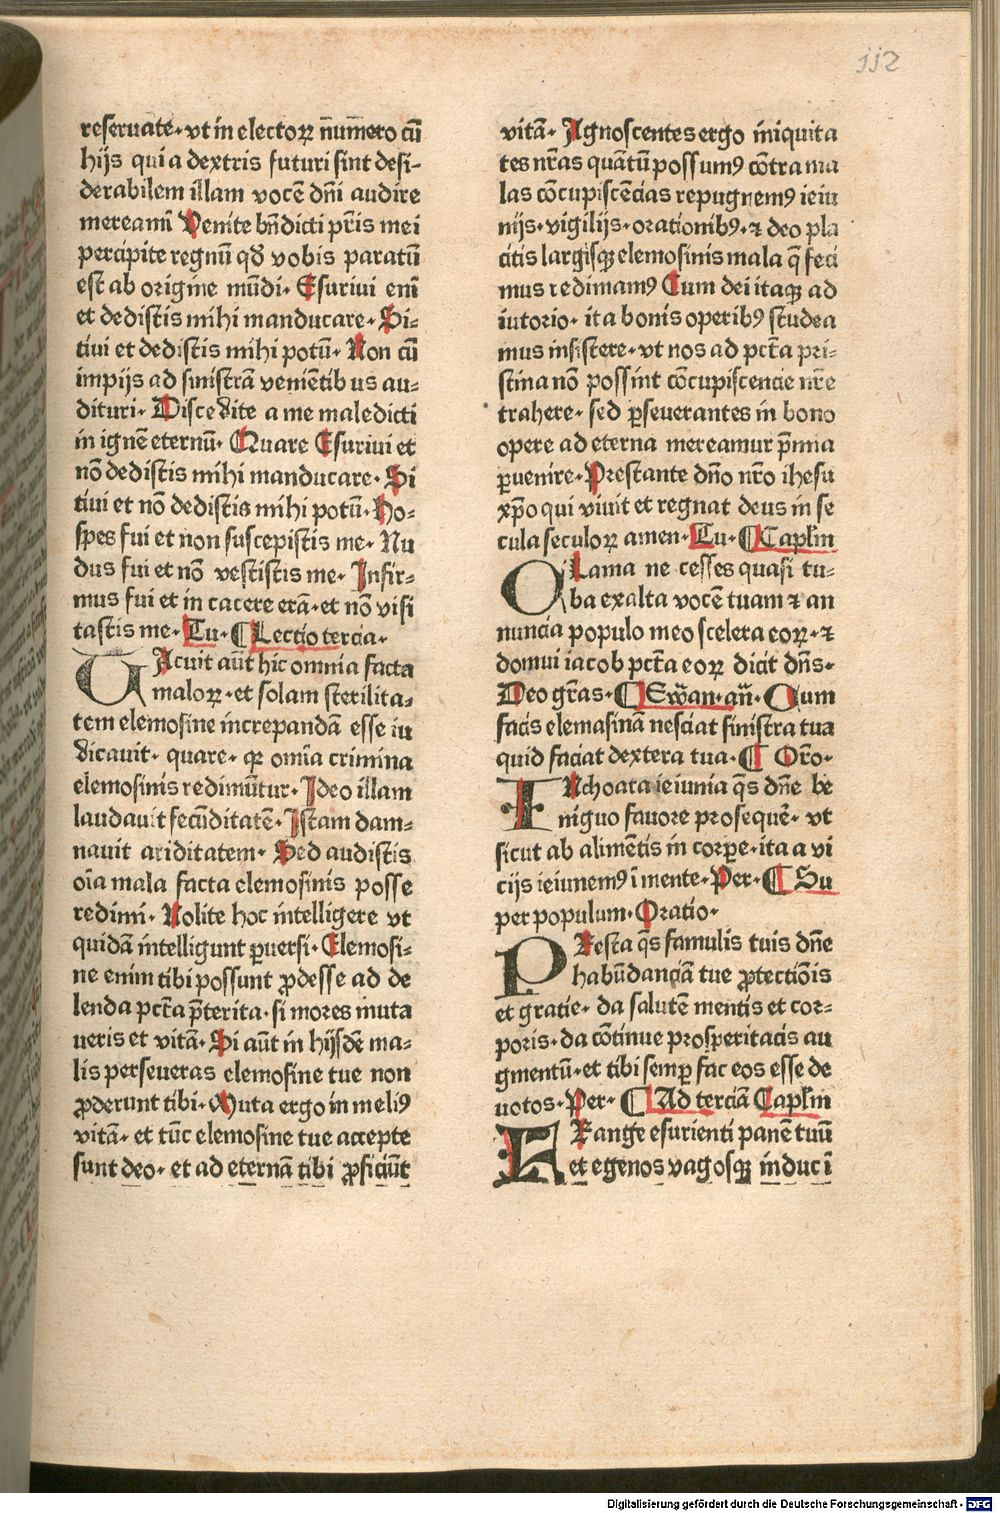 112
reseruate· vt in electoꝝ nūmero cū
hijs qui a dextris futuri sint desi-
derabilem illam vocē dn̄i audire
mereamī Venite bn̄dicti pr̄is mei
percipite regnū qd̄ vobis paratū
est ab origine mūdi· Esurivi enī
et dedistis mihi manducare· Si-
tivi et dedistis mihi potū· Non cū
impijs ad sinistrā venientib us au-
dituri· Discedite a me maledicti
in ignē eternū· Quare Esurivi et
nō dedistis mihi manducare· Si
tivi et nō dedistis mihi potū· Ho-
spes fui et non suscepistis me· Nu
dus fui et nō vestistis me· Infir-
mus fui et in cacere erā· et nō visi
tastis me· Tu· ¶ Lectio tercia·
VAcuit aūt hic omnia facta
maloꝝ· et solam sterilita-
tem elemosine increpandā esse iu
dicavit· quare· qꝛ om̄ia crimina
elemosinis redimūtur· Ideo illam
laudauit fecūditatē· Istam dam-
nauit ariditatem· Sed audistis
oīa mala facta elemosinis posse
redimi· Nolite hoc intelligere vt
quidā intelligunt ꝑuersi· Elemosi-
ne enim tibi possunt ꝓdesse ad de
lenda pctā p̄terita· si mores muta
ueris et vitā· Si aūt in hijsdē ma-
lis perseueras elemosine tue non
ꝓderunt tibi· Muta ergo in meliꝰ
vitā· et tūc elemosine tue accepte
sunt deo· et ad eternā tibi ꝓficiūt
vitā· Agnoscentes ergo iniquita
tes nr̄as quātū possumꝰ cōtra ma
las cōcupiscēcias repugnemꝰ ieiu
nijs· vigilijs· orationibꝰ· ⁊ deo pla
citis largisqꝫ elemosinis mala q̄ feci
mus redimamꝰ Cum dei itaqꝫ ad
iutorio· ita bonis operibꝰ studea
mus insistere· vt nos ad pctā pri-
stina nō possint cōcupiscencie nr̄e
trahere· sed ꝑseuerantes in bono
opere ad eterna mereamur p̄mia
ꝑuenire· Prestante dn̄o nr̄o ihesu
xp̄o qui viuit et regnat deus in se
cula seculoꝝ amen· Tu· ¶ Capl̄m
CLama ne cesses quasi tu-
ba exalta vocē tuam ⁊ an
nuncia populo meo scelera eoꝝ· ⁊
domui iacob pctā eoꝝ dicit dn̄s·
Deo gr̄as· ¶ Ewan· an̄· Cum
facis elemasinā nesciat sinistra tua
quid faciat dextera tua· ¶ Or̄o·
INchoata ieiunia q̄s dn̄e be
niguo favore prosequē· vt
sicut ab alimētis in corꝑe· ita a vi
cijs ieiunemꝰ ī mente· Per· ¶ Su
per populum· Oratio·
PResta q̄s famulis tuis dn̄e
habūdanciā tue ꝓtectiōis
et gratie· da salutē mentis et cor-
poris· da cōtinue prosperitatis au
gmentū· et tibi semꝑ fac eos esse de
uotos· Per· ¶ Ad terciā Capl̄m
FRange esurienti panē tuū
et egenos vagosqꝫ induc ī
Digitalisierung gefördert durch die Deutsche Forschungsgemeinschaft - DFG